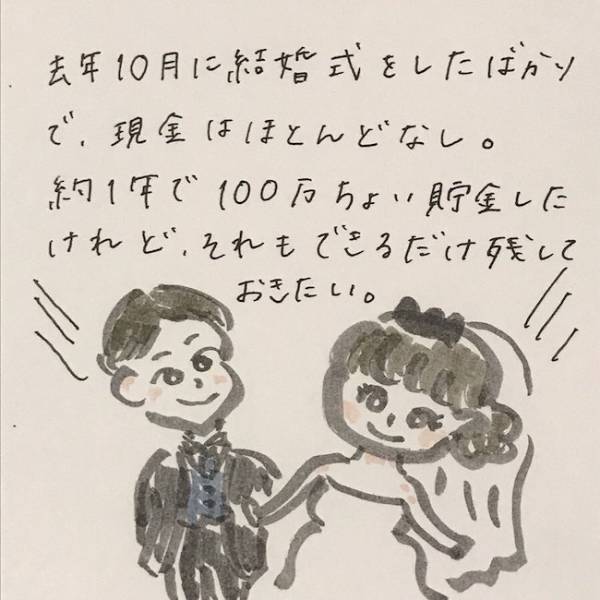 去年10月に結婚式をしたばかり
で、現金はほとんどなし。
約1年で100万ちょい貯金した
けれど、それもできるだけ残して
おきたい。